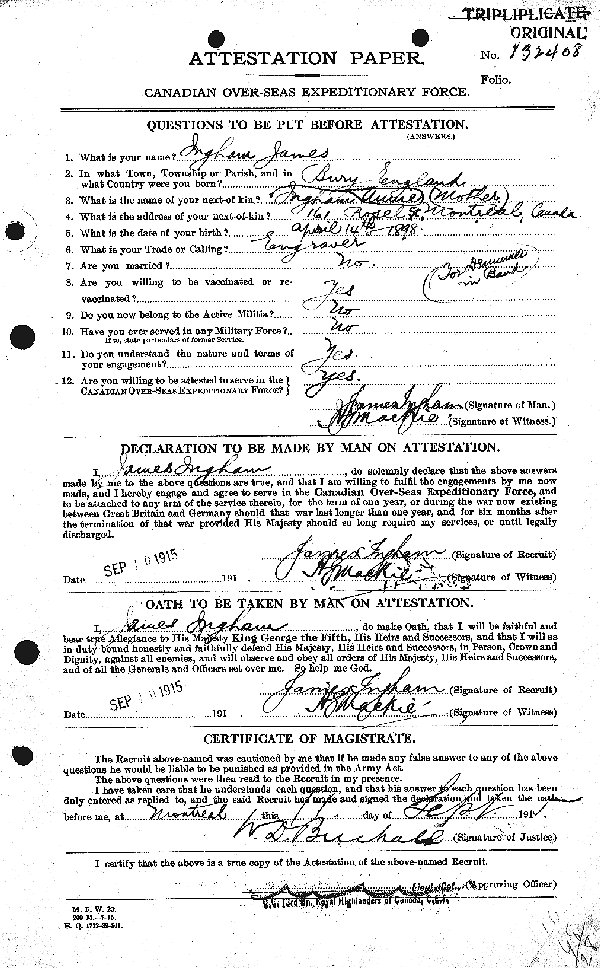 TRIPLIPLICATE
ORIGINAL
No. 132408
Folio.
ATTESTATION PAPER.
CANADIAN OVER-SEAS EXPEDITIONARY FORCE.
QUESTIONS TO BE PUT BEFORE ATTESTATION.
(ANSWERS.)
1. What is your name? Ingham James
2. In what Town, Township or Parish, and in
what Country were you born? Bury England
3. What is the name of your next-of-kin? Ingham (Mother)
4. What is the address of your next-of-kin? 161 St Montreal, Canada
5. What is the date of your birth? April 14th 1898
6. What is your Trade or Calling? Engraver
7. Are you married? No.
8. Are you willing to be vaccinated or re-
vaccinated? Yes
9. Do you now belong to the Active Militia? No
10. Have you ever served in any Military Force? No
If so, state particulars of former Service.
11. Do you understand the nature and terms of
your engagement? Yes
12. Are you willing to be attested to serve in the
CANADIAN OVER-SEAS EXPEDITIONARY FORCE? Yes.
(For in Band)
James Ingham (Signature of Man.)
A Mackie (Signature of Witness.)
DECLARATION TO BE MADE BY MAN ON ATTESTATION.
I, James Ingham, do solemnly declare that the above answers
made by me to the above questions are true, and that I am willing to fulfil the engagements by me now
made, and I hereby engage and agree to serve in the Canadian Over-Seas Expeditionary Force, and
to be attached to any arm of the service therein, for the term of one year, or during the war now existing
between Great Britain and Germany should that war last longer than one year, and for six months after
the termination of that war provided His Majesty should so long require my services, or until legally
discharged.
James Ingham (Signature of Recruit)
Date SEP 10 1915 191 A Mackie (Signature of Witness)
OATH TO BE TAKEN BY MAN ON ATTESTATION.
I, James Ingham, do make Oath, that I will be faithful and
bear true Allegiance to His Majesty King George the Fifth, His Heirs and Successors, and that I will as
in duty bound honestly and faithfully defend His Majesty, His Heirs and Successors, in Person, Crown and
Dignity, against all enemies, and will observe and obey all orders of His Majesty, His Heirs and Successors,
and of all the Generals and Officers set over me. So help me God.
James Ingham (Signature of Recruit)
Date SEP 10 1915 191 A Mackie (Signature of Witness)
CERTIFICATE OF MAGISTRATE.
The Recruit above-named was cautioned by me that if he made any false answer to any of the above
questions he would be liable to be punished as provided in the Army Act.
The above questions were then read to the Recruit in my presence.
I have taken care that he understands each question, and that his answer to each question has been
duly entered as replied to, and the said Recruit has made and signed the declaration and taken the oath
before me, at Montreal this day of Sept 191
W D Birchall (Signature of Justice)
I certify that the above is a true copy of the Attestation of the above-named Recruit.
Lieut. Col. (Approving Officer)
O.C. 73rd Bn. Royal Highlanders of Canada, C.E.F.
M. F. W. 23.
H. Q. 1772-39-241.